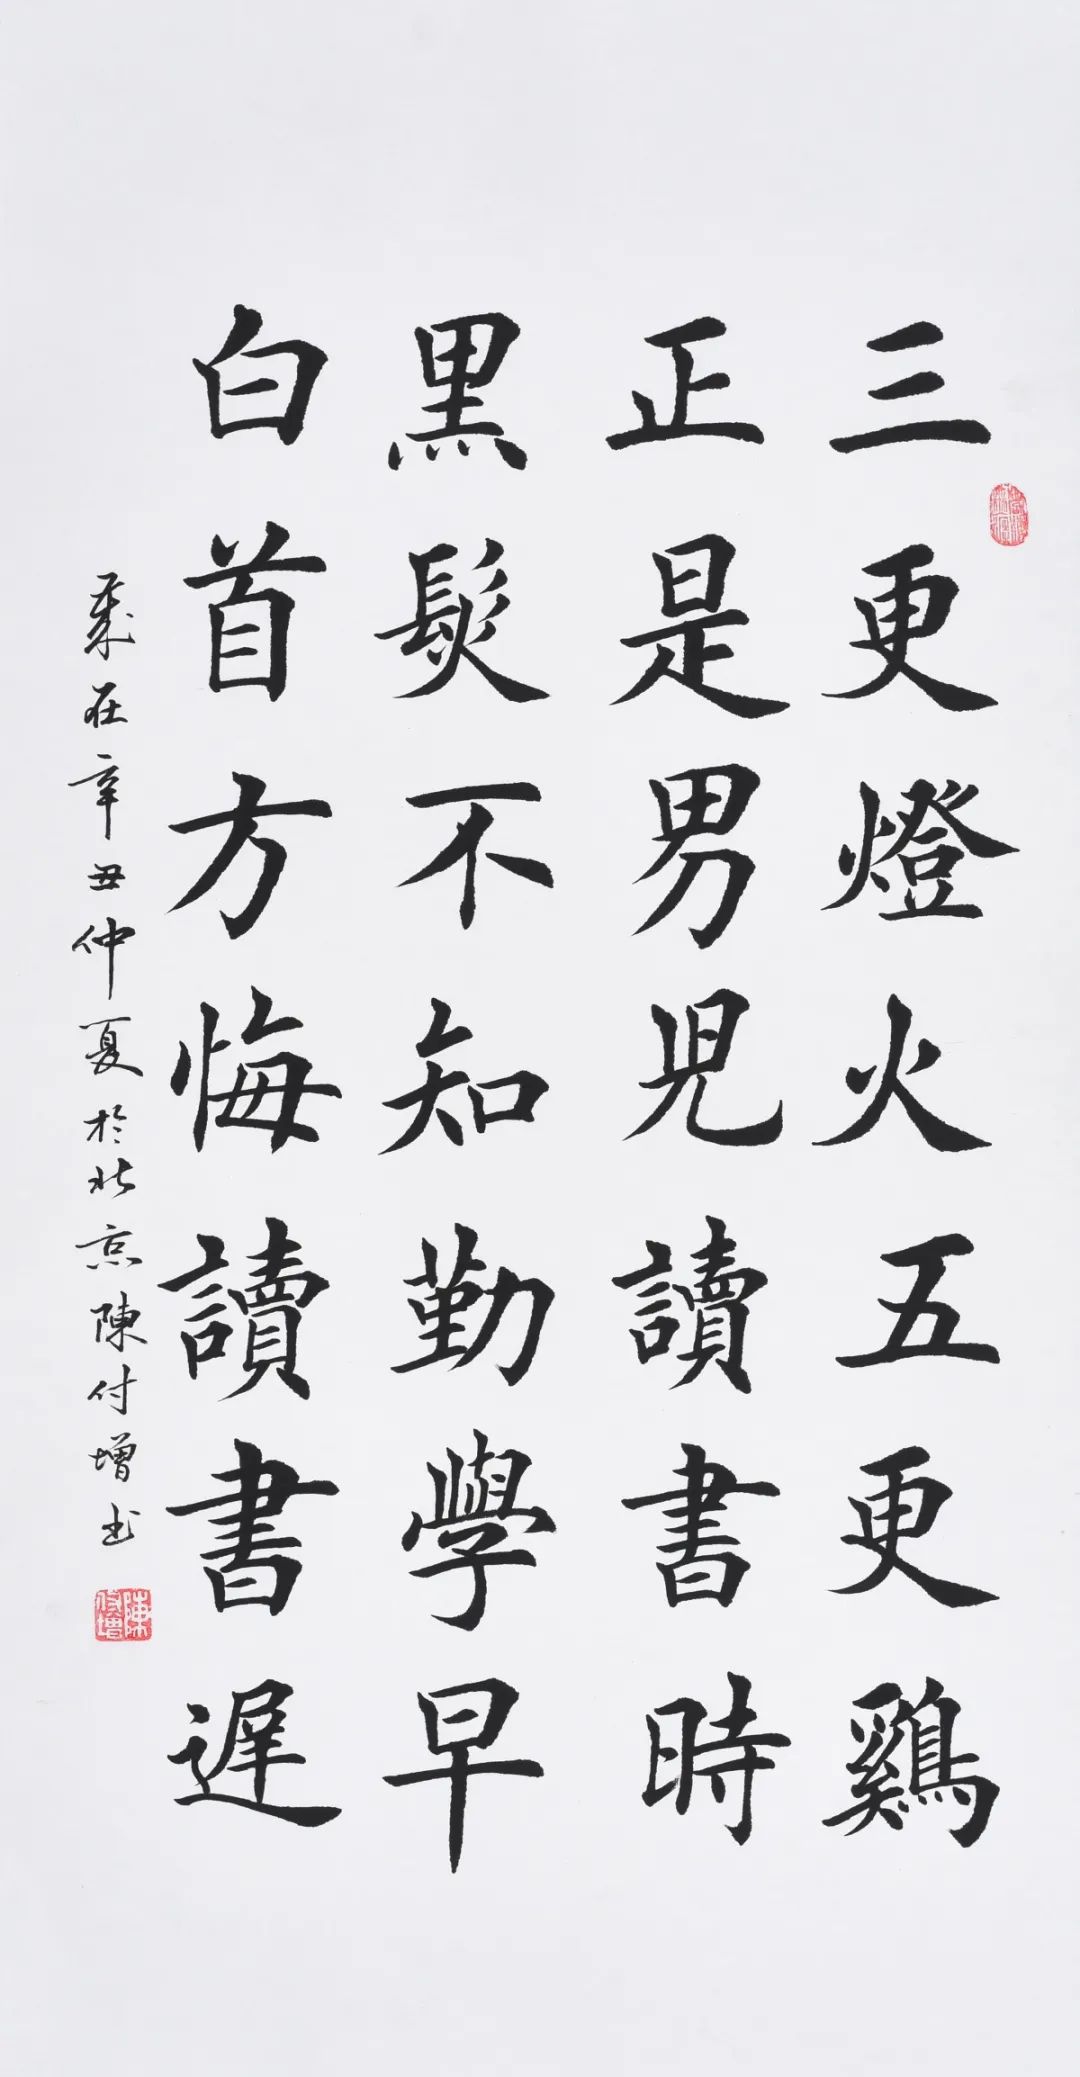 三更燈火五更鷄
正是男兒讀書時
黑髮不知勤學早
白首方悔讀書遲
歲在辛丑仲夏於北京陳付增书
陳付增